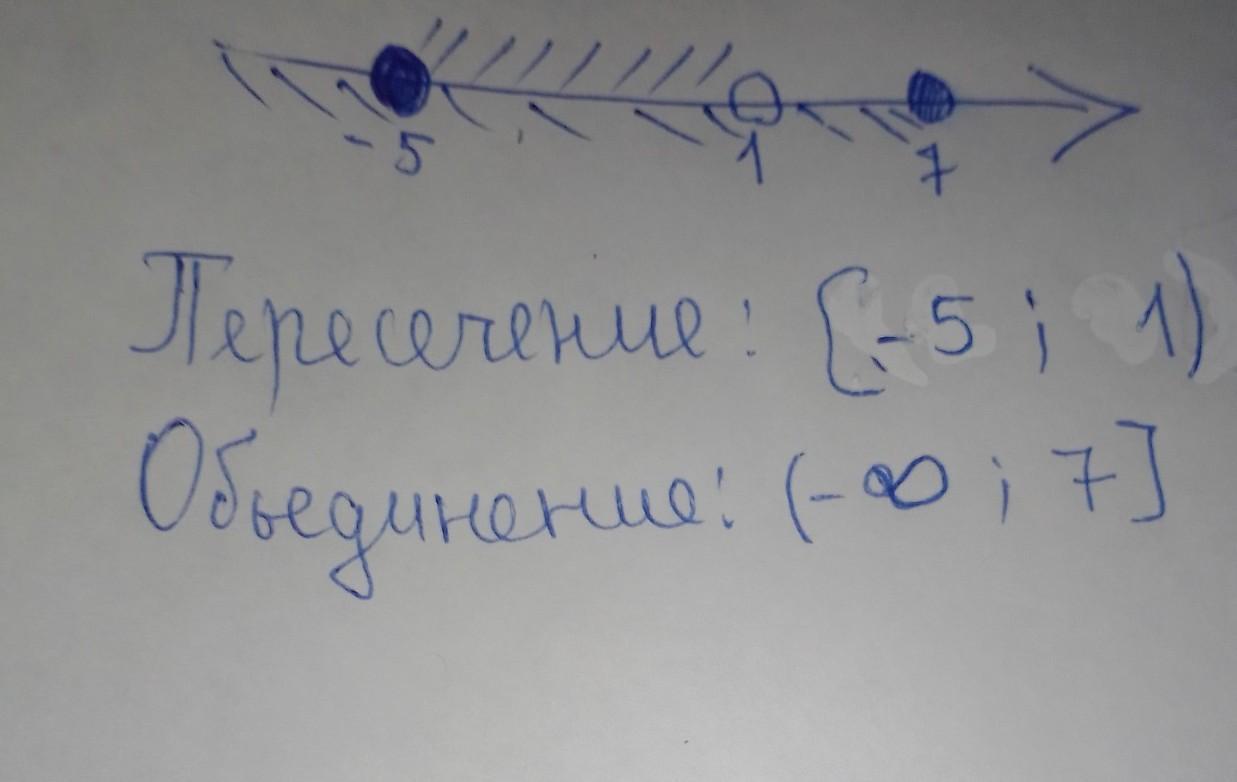 -5 1 7
Пересечение: [-5 ; 1)
Обьединение: (-∞ ; 7]